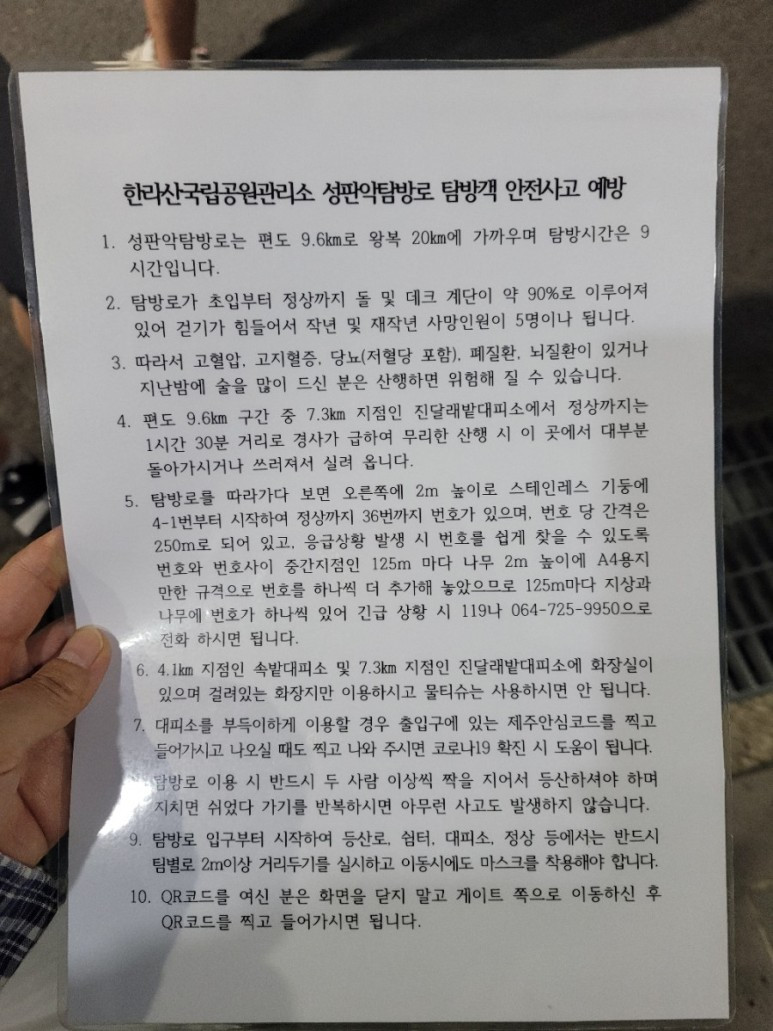 한라산국립공원관리소 성판악탐방로 탐방객 안전사고 예방
1. 성판악탐방로는 편도 9.6km로 왕복 20km에 가까우며 탐방시간은 9
시간입니다.
2. 탐방로가 초입부터 정상까지 돌 및 데크 계단이 약 90%로 이루어져
있어 걷기가 힘들어서 작년 및 재작년 사망인원이 5명이나 됩니다.
3. 따라서 고혈압, 고지혈증, 당뇨(저혈당 포함), 폐질환, 뇌질환이 있거나
지난밤에 술을 많이 드신 분은 산행하면 위험해 질 수 있습니다.
4. 편도 9.6km 구간 중 7.3km 지점인 진달래밭대피소에서 정상까지는
1시간 30분 거리로 경사가 급하여 무리한 산행 시 이 곳에서 대부분
돌아가시거나 쓰러져서 실려 옵니다.
5. 탐방로를 따라가다 보면 오른쪽에 2m 높이로 스테인레스 기둥에
4-1번부터 시작하여 정상까지 36번까지 번호가 있으며, 번호 당 간격은
250m로 되어 있고, 응급상황 발생 시 번호를 쉽게 찾을 수 있도록
번호와 번호사이 중간지점인 125m 마다 나무 2m 높이에 A4용지
만한 규격으로 번호를 하나씩 더 추가해 놓았으므로 125m마다 지상과
나무에 번호가 하나씩 있어 긴급 상황 시 119나 064-725-9950으로
전화 하시면 됩니다.
6. 4.1km 지점인 속밭대피소 및 7.3km 지점인 진달래밭대피소에 화장실이
있으며 걸려있는 화장지만 이용하시고 물티슈는 사용하시면 안 됩니다.
7. 대피소를 부득이하게 이용할 경우 출입구에 있는 제주안심코드를 찍고
들어가시고 나오실 때도 찍고 나와 주시면 코로나19 확진 시 도움이 됩니다.
탐방로 이용 시 반드시 두 사람 이상씩 짝을 지어서 등산하셔야 하며
지치면 쉬었다 가기를 반복하시면 아무런 사고도 발생하지 않습니다.
9. 탐방로 입구부터 시작하여 등산로, 쉼터, 대피소, 정상 등에서는 반드시
팀별로 2m이상 거리두기를 실시하고 이동시에도 마스크를 착용해야 합니다.
10. QR코드를 여신 분은 화면을 닫지 말고 게이트 쪽으로 이동하신 후
QR코드를 찍고 들어가시면 됩니다.